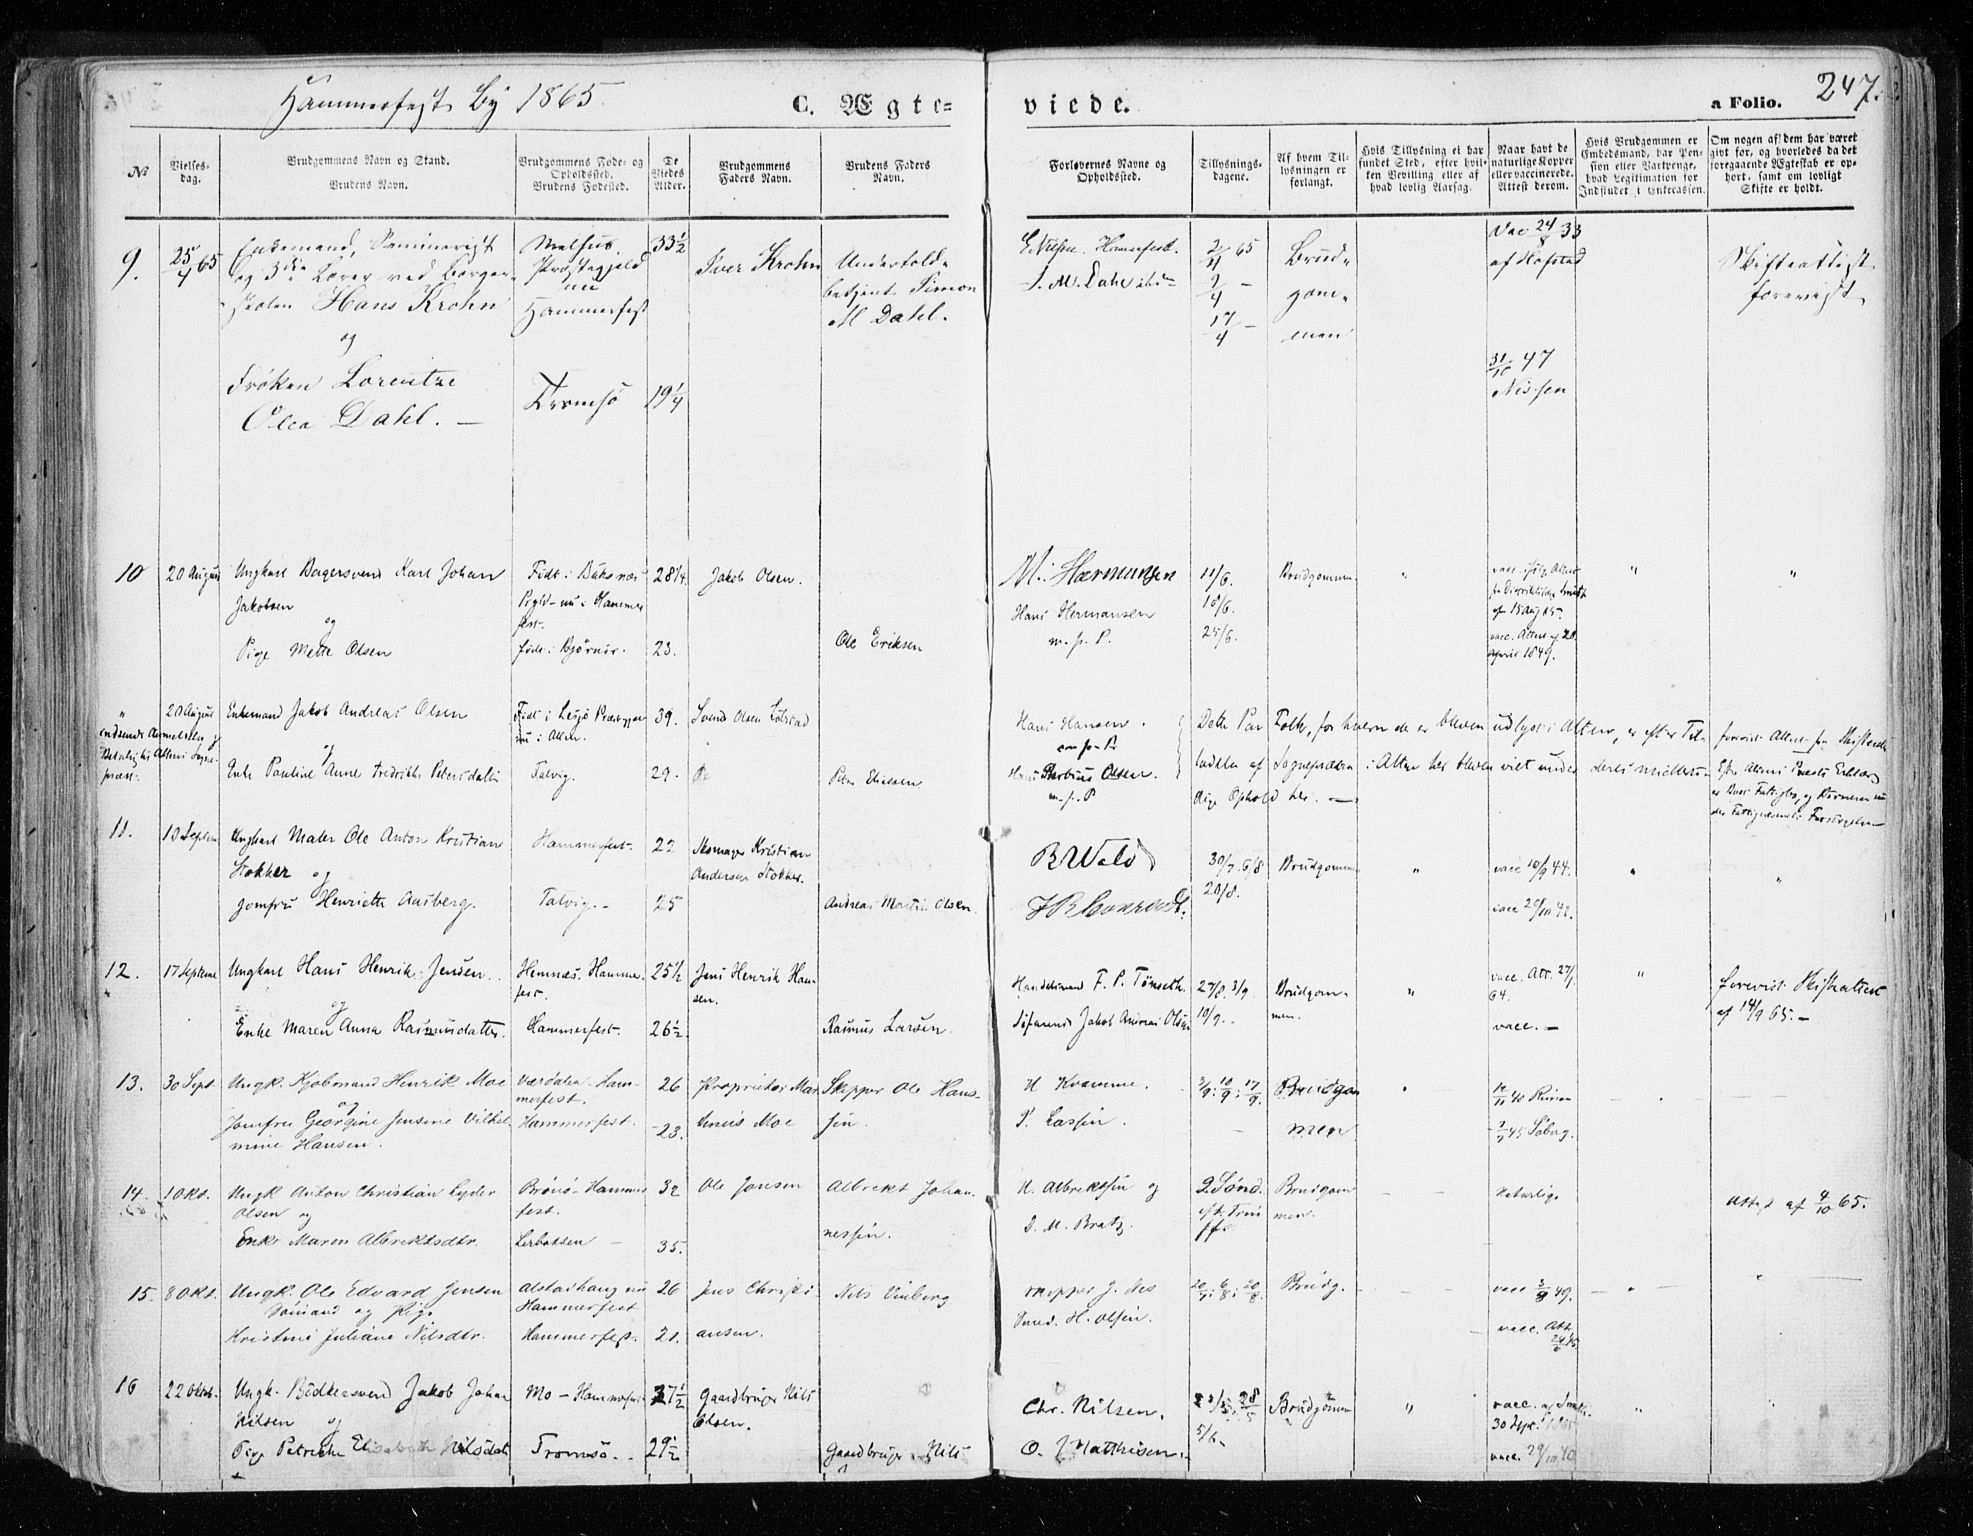 Hammerfest By 1865.
C. Ægte=
viede.
a Folio. 247.
No
Vielses-
dag.
Brudgommens Navn og Stand.
Brudens Navn.
Brudgommens Føde- og
Opholdssted.
Brudens Fødested.
De
Viedes
Alder.
Brudgommens
Faders Navn.
Brudens Faders
Navn.
Forlovernes Navne og
Opholdssted.
Tillysnings-
dagene.
Af hvem Til-
lysningen er
forlangt.
Hvis Tillysning ei har
fundet Sted, efter hvil-
ken Bevilling eller af
hvad lovlig Aarsag.
Naar havt de
naturlige Kopper
eller vaccinerede.
Attest derom.
Hvis Brudgommen er
Embedsmand, har Pen-
sion eller Vartpenge,
hvad Legitimation for
Indskudet i Enkecassen.
Om nogen af dem har været
givt før, og hvorledes da det
foregaaende Ægteskab er op-
hørt, samt om lovligt
Skifte er holdt.
9.
25/4 65
Enkemand, Seminarist
og 3die Lærer ved Borger-
skolen Hans Krohn
og
Frøken Lorentze
Olea Dahl. —
Melhus
Præstegjeld
nu
Hammerfest
Tromsö
33 1/2
19 1/4
Iver Krohn
Undertold-
betjent Simon
M Dahl.
E Nilsen. Hammerfest.
S. M. Dahl ibid
2/4 65
9/4 -
17/4 -
Brud-
gom-
men
Vac 24/8 33
af Hofstad
31/10 47
Nissen
Skifteattest
forevist
10
20 August
Ungkarl Bagersvend Karl Johan
Jakobsen
og
Pige Mette Olsen
Født i Buksnæs
Prgld - nu i Hammer
fest.
født i Bjørnør.
28 1/4
23.
Jakob Olsen.
Ole Eriksen
M. Hermansen
Hans Hermansen
m. p. P.
11/6.
18/6.
25/6.
Brudgommen
"
vacc. ifølg Attest
fra Distriktslæge
af 15 Aug 65.
vacc. Attest af 28
April 1849.
"
"
"
20 August
indsendt Anmeldelse
Altens Sogne-
præst.
Enkemand Jakob Andreas Olsen
og
Enke Pauline Anne Fredrikke Petersdatter
Født i Lesjø Præstegjeld
nu i Alten.
Talvig.
39.
29.
Svend Olsen
Peter Eliessen
Hans Hansen.
m. p. P.
Hans Olsen.
m. p. P
Dette Par Folk, for hvem der er bleven udlyst i Alten, er efter Til-
ladelse af Sognepræsten i Alten her bleven viet under deres midlerti-
dige Ophold her. —
forevist Attest fra Skifteret
Efter Altens Præsts Erklæring
er Boet Fattigbo, og Børnene un
der Fattigvæsenets Forsørgelse
11.
10 Septem
Ungkarl Maler Ole Anton Kristian
Stokker og
Jomfru Henriette Aasberg.
Hammerfest.
Talvig. -
22
25
Skomager Kristian
Andersen Stokker.
Andreas Martin Olsen.
B Wold
30/7. 6/8
20/8.
Brudgommen
"
vacc 10/9 44.
"
"
12.
17 Septemb
Ungkarl Hans Henrik Jensen.
og
Enke Maren Anna Rasmusdatter.
Hemnæs. Hammer-
fest.
Hammerfest.
25 1/2
26 1/2
Jens Henrik Han-
sen.
Rasmus Larsen.
Handelsmand F. P. Tønseth.
Søfarende Jakob Andreas Olsen
27/8. 3/9.
10/9. .
Brudgom-
men.
"
vacc. Att. 27/
64.
vacc. —
"
forevist Skifteattest
af 14/9 65. —
13.
30 Sept.
Ungk. Kjøbmand Henrik Moe
og
Jomfru Georgine Jensine Vilhel
mine Hansen.
Værdalen. Ham-
merfest.
Hammerfest.
26
23.
Proprietær
Moe
Skipper Ole Han-
sen.
H Kvamme.
P. Lassen.
3/9: 10/9: 17/9.
Brudgom
men
"
45 Soberg.
14.
1 Okt.
Ungk Anton Christian Lyder
Olsen og
Enke Maren Albrektsdtr.
Brönö - Hammer
fest.
Lerbotsen —
32
35.
Ole Jonsen
Albrekt Johan-
nessen.
H. Albrektsen og
D. M. Bratz.
2 Sønd.
eft. Trin
Brudgom
men.
Naturlige
Attest af 4/10 65.
15.
8 Okt.
Ungk. Ole Edvard Jensen
Sømand og Pige
Kristine Juliane Nilsdtr.
Alstadhaug nu
Hammerfest
Hammerfest.
26
21.
Jens Christi
ansen.
Nils Vinberg
Skipper J. Nes
H. Olsen.
Brudg.
vacc 49.
vacc. Att
16
22 Oktob.
Ungk. Bødkersvend Jakob Johan
Nilsen og
Pige Petrikke Elisabeth Nilsdatt
Mo — Hammerfest
Tromsø. .
27 1/2
29 1/2
Gaardbruger Nils
Olsen.
Gaardbruger Nils
Chr. Nilsen.
O. J Matthisen.
28/5
5/6.
Brudgommen
"
vacc. af
30 Sept. 1865
vacc. 29/10 40
"